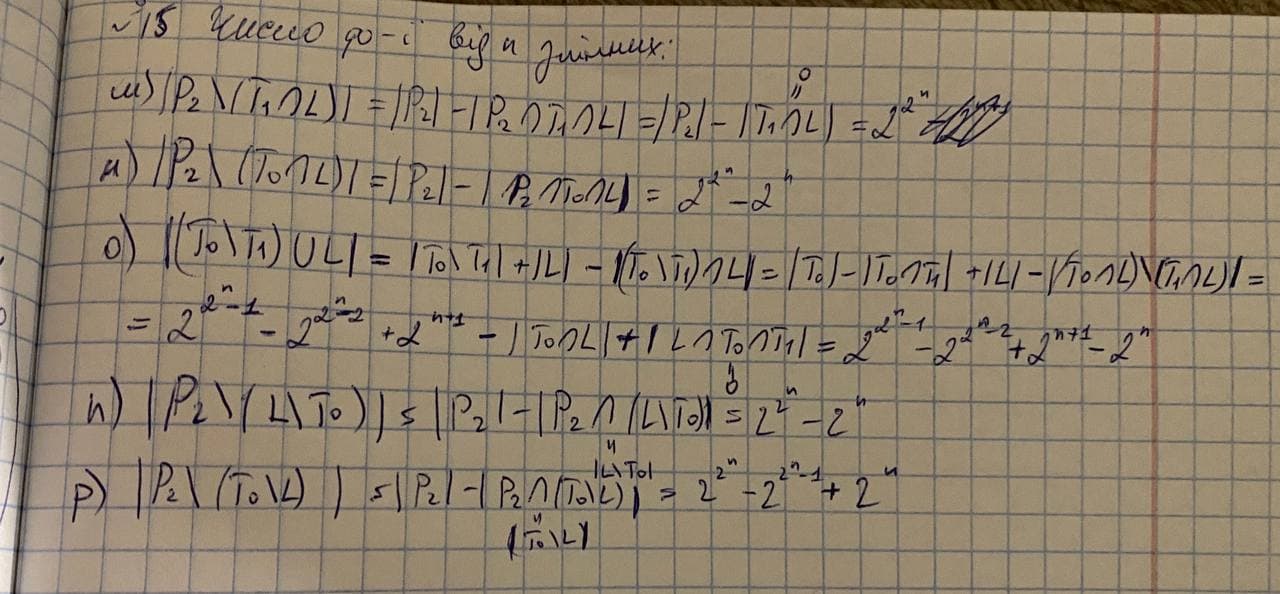 №15 Число ф-і від n змінних:
м) |P₂\(T₁∩L)| = |P₂| - |P₂∩T₁∩L| = |P₂| - |T₁∩L| = 2^{2^n}
0
н) |P₂\(T₀∩L)| = |P₂| - |P₂∩T₀∩L| = 2^{2^n} - 2^n
о) |(T₀\T₁)∪L| = |T₀\T₁| + |L| - |(T₀\T₁)∩L| = |T₀| - |T₀∩T₁| + |L| - |(T₀∩L)\(T₁∩L)| =
= 2^{2^n-1} - 2^{2^n-2} + 2^{n+1} - |T₀∩L| + |L∩T₀∩T₁| = 2^{2^n-1} - 2^{2^n-2} + 2^{n+1} - 2^n
0
п) |P₂\(L\T₀)| = |P₂| - |P₂∩(L\T₀)| = 2^{2^n} - 2^n
|L\T₀|
р) |P₂\(T₀\L)| = |P₂| - |P₂∩(T₀\L)| = 2^{2^n} - 2^{2^n-1} + 2^n
|T₀\L|